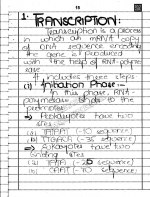 15
1. TRANSCRIPTION:
Transcription is a process
in which an mRNA copy
of DNA sequence encoding
the gene is produced
with the help of RNA poly-
merase
It includes three steps
(1) Initiation Phase:-
In this phase, RNA-
polymerase, binds to the
promoter.
Prokaryotes have two
(a) TATAAT (-10 sequence)
(b) TTGACA (-35 sequence)
Eukaryotes have two
binding sites
(a) TATA (-25 sequence)
(b) CAAT (-70 sequence)